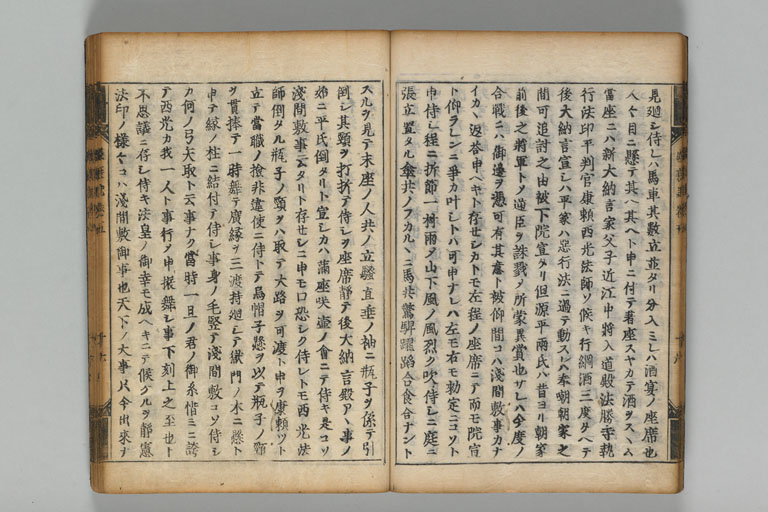 見廻シ侍シハ馬車其数立並タリ分入ミレハ酒宴ノ座席也
人々目ニ懸テ其ハ其ヘト申ニ付テ著座スヤカテ酒ヲスヽム
當座ニハ新大納言家父子近江中将入道殿法勝寺執
行法印平判官康頼西光法師ソ候キ行綱酒三度タヘテ
後大納言宣シハ平家ハ悪行法ニ過テ動スレハ奉嘲朝家之
間可追討之由被下院宣タリ但源平両氏ハ昔ヨリ朝家
前後之将軍トメ逆臣ヲ誅戮メ所蒙異賞也サレハ今度ノ
合戦ニハ御邊ヲ憑可有其意ト被仰間コハ淺間敷事カナ
イカヽ返答申ヘキト存セシカトモ左程ノ座席ニテ而モ院宣
ト仰ラレンニ争カ叶シトハ可申ナレハ左モ右モ勅定ニコソト
申侍シ程ニ折節一村雨ノ山下風ノ風烈ク吹侍シニ庭ニ
張立置タル傘共ノフカルヽニ馬共驚騨躍蹈合食合ナント
スルヲ見テ末座ノ人共ノ立騒直垂ノ袖ニ瓶子ヲ係テ引
倒シ其頸ヲ打折テ侍シヲ座席静テ後大納言殿アハ事ノ
始ニ平氏倒タリト宣シカハ満座咲壷ノ會ニテ侍キ是コソ
淺間敷事云タリト存セシニ申モ口恐シク侍レトモ西光法
師倒タル瓶子ノ頸ヲハ取テ大路ヲ可渡ト申ヲ康頼ツト
立テ當職ノ検非違使ニ侍トテ烏帽子懸ヲ以テ瓶子ノ頸
ヲ貫捧テ一時舞テ廣縁ヲ三渡持廻シテ獄門ノ木ニ懸ト
申テ縁ノ柱ニ結付テ侍シ事身ノ毛竪テ淺間敷コソ侍シ
カ何ノ弓矢取ト云事ナク當時一旦ノ君ノ御糸惜ミニ誇
テ西光カ我一人ト事行メ申振舞シ事下刻上之至也ト
不思議ニ存シ侍キ法皇ノ御幸モ成ヘキニテ候ケルヲ静憲
法印ノ様々コハ淺間敷御事也天下ノ大事只今出來ナ